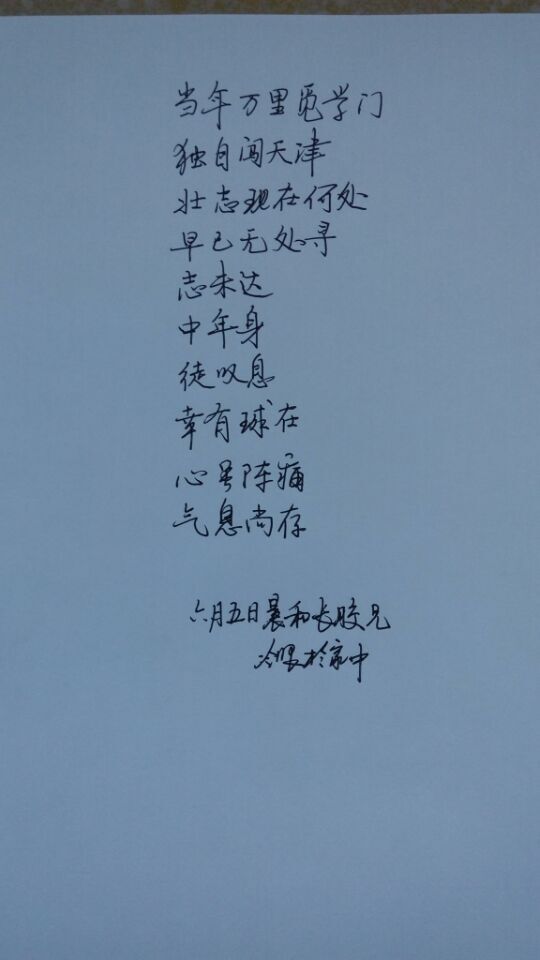 当年万里觅学门
独自闯天津
壮志现在何处
早已无处寻
志未达
中年身
徒叹息
幸有球在
心虽阵痛
气息尚存
六月五日晨和长胶兄
冷眼于家中